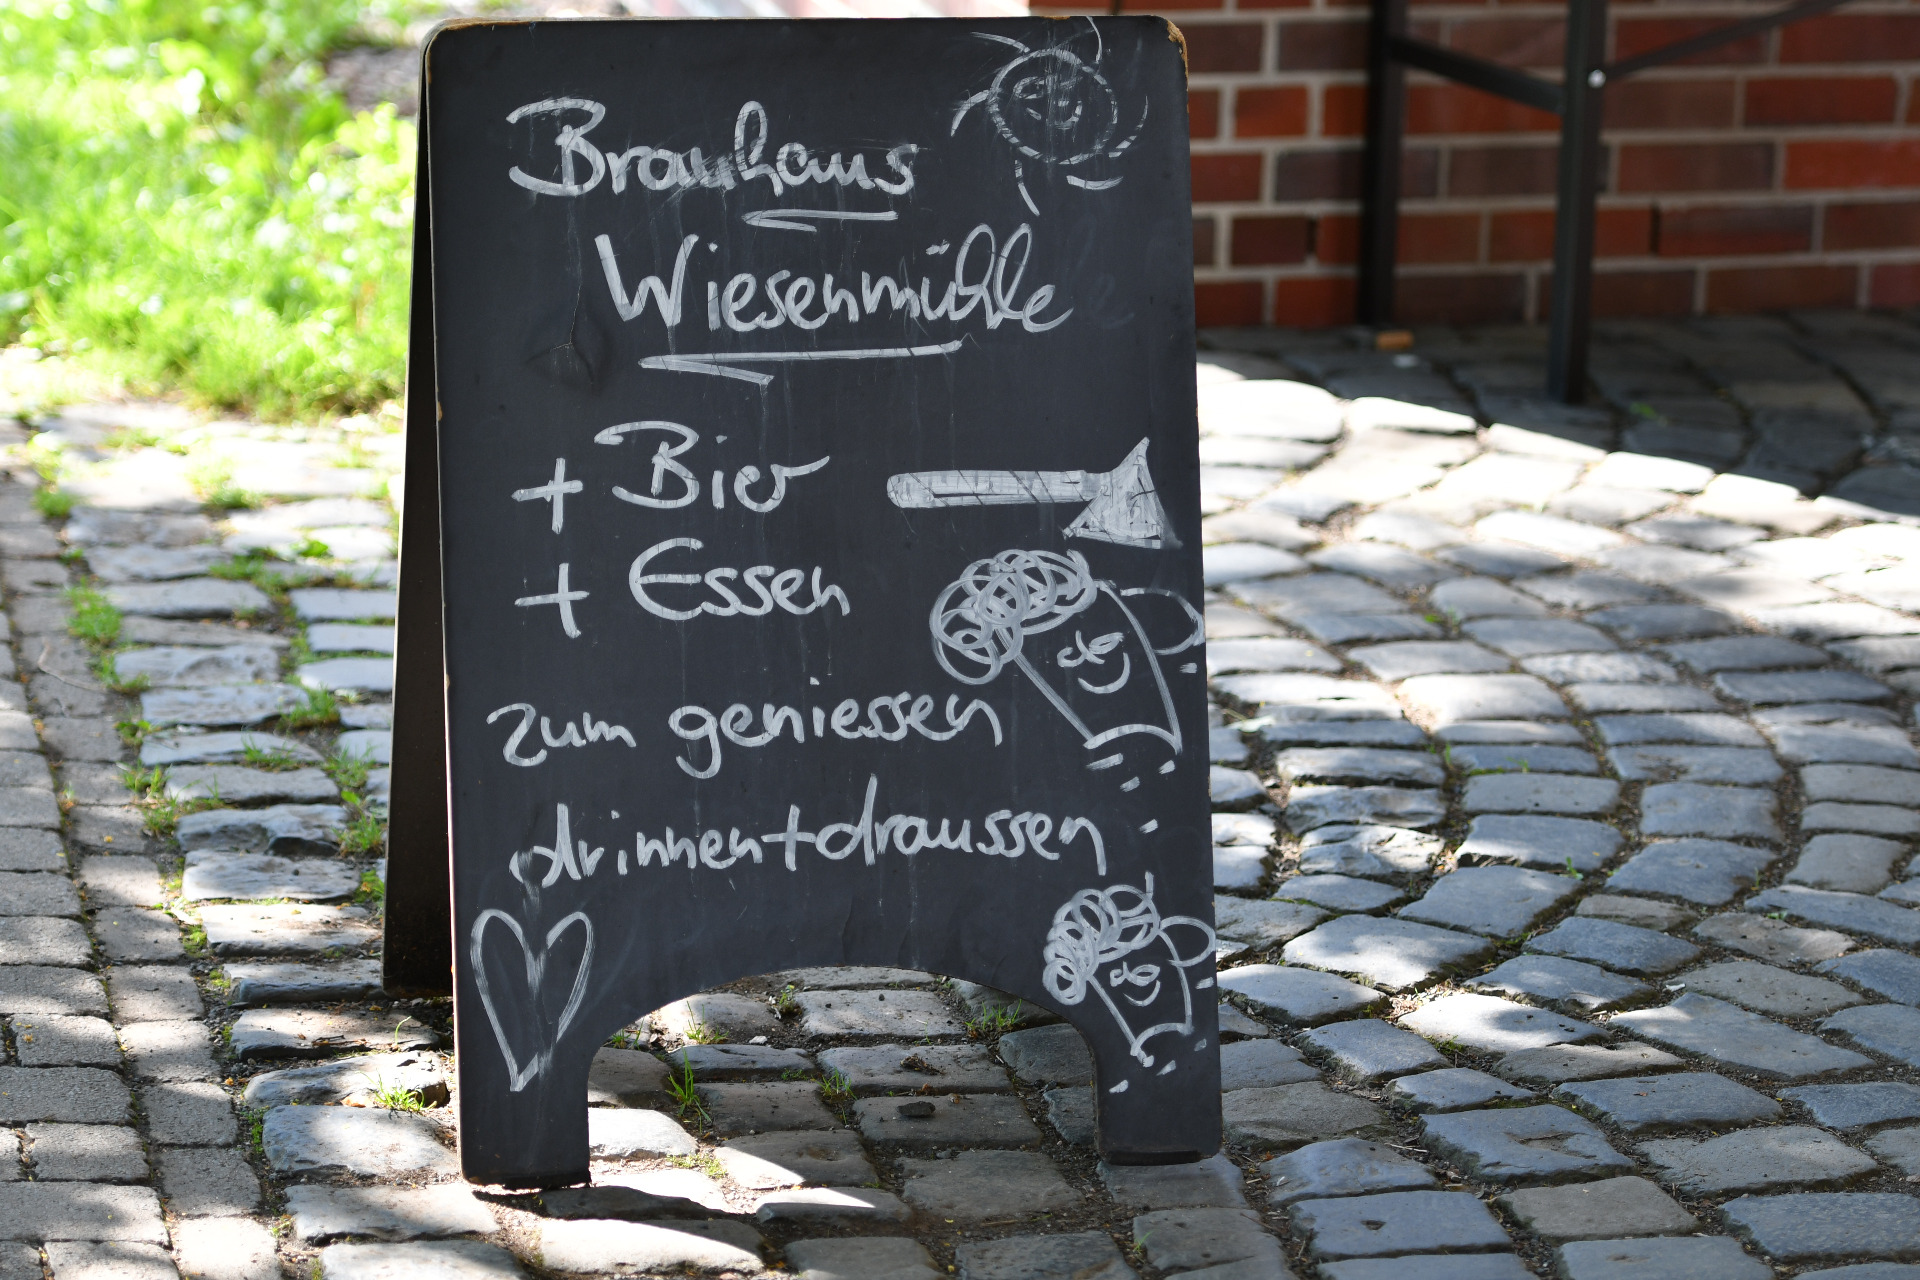 Brauhaus
Wiesenmühle
+ Bier
+ Essen
zum geniessen
drinnen + draussen